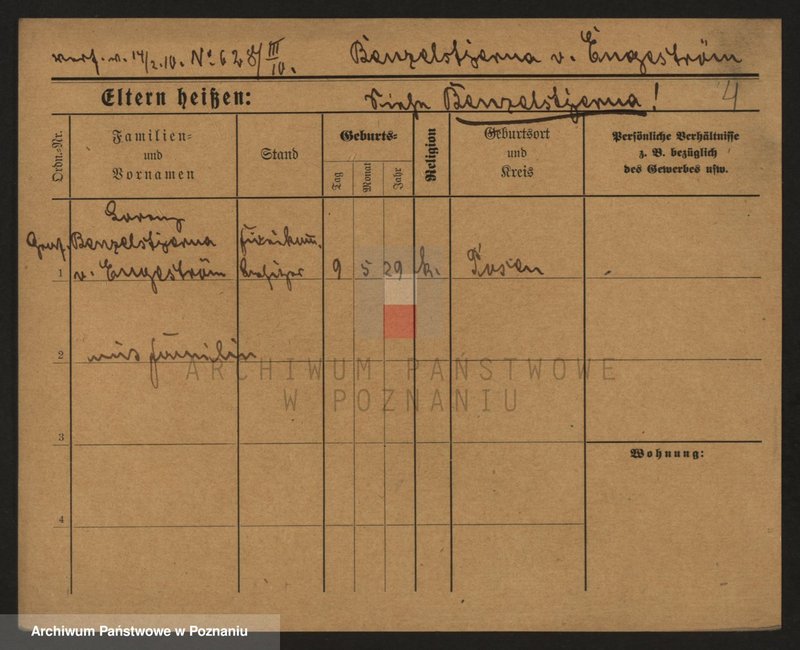 verf. v. 14/2.10. No 628/III 10. Benzelstjerna v. Engeström
Eltern heißen: Siehe Benzelstjerna! 4
Ordn.=Nr.
Familien=
und
Vornamen
Stand
Geburts=
Tag
Monat
Jahr
Religion
Geburtsort
und
Kreis
Persönliche Verhältnisse
z. B. bezüglich
des Gewerbes usw.
Lorenz
Graf. Benzelstjerna
1 v. Engeström
besitzer 9 5 29 k. Posen
2 mit Familie
ARCHIWUM PAŃSTWOWE
W POZNANIU
3
Wohnung:
4
Archiwum Państwowe w Poznaniu